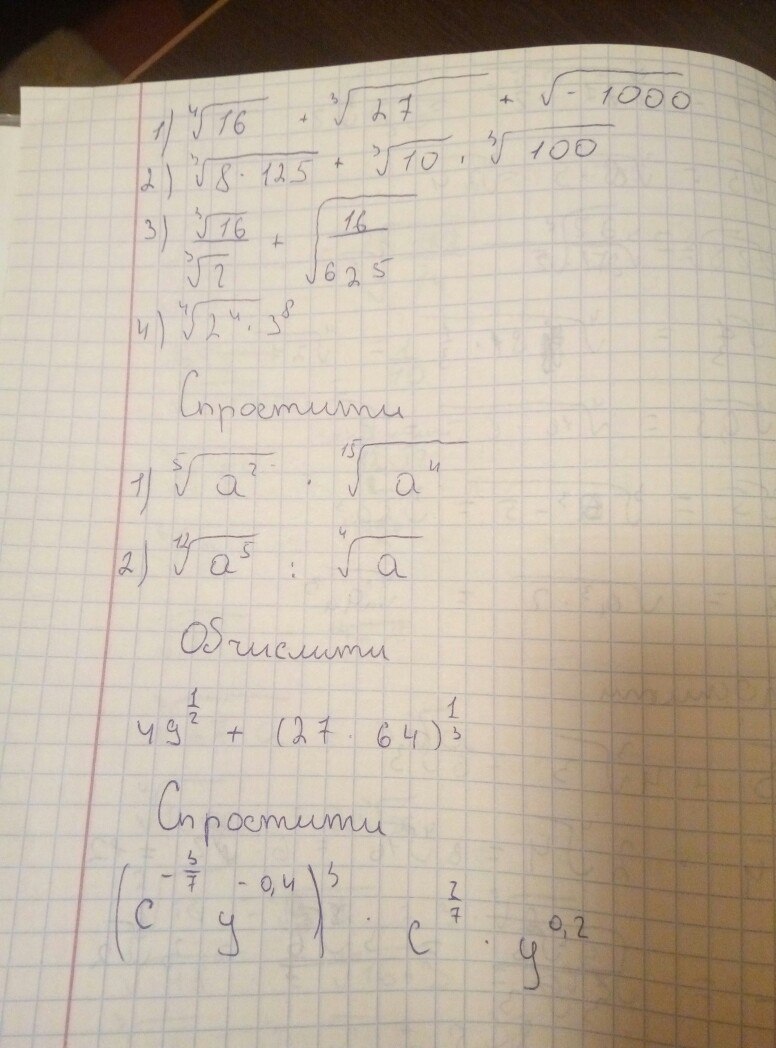 1) ⁴√16 + ³√27 + √-1000
2) ³√8·125 + ³√10 · ³√100
3) ³√16 / ³√2 + √16/625
4) ⁴√2⁴ · 3⁸
Спростити
1) ⁵√a² · ¹⁵√a⁴
2) ¹²√a⁵ : ⁴√a
Обчислити
49^(1/2) + (27 · 64)^(1/3)
Спростити
(c^(-3/7) y^(-0,4))³ · c^(2/7) · y^(0,2)